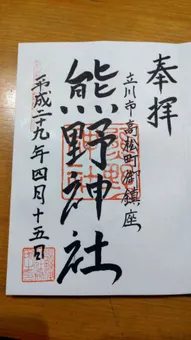 奉拝
立川市高松町御鎮座
熊野神社
平成二九年四月十五日